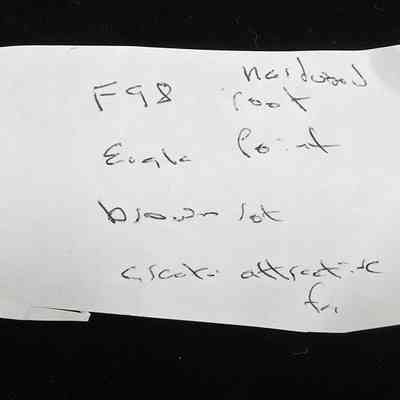 F98 hardwood
root
Eagle Point
brown rot
create attractive
fr.